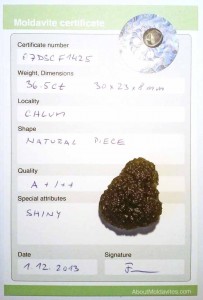 Moldavite certificate
Certificate number
F7DSCF1425
Weight, Dimensions
36.5ct 30x23x8mm
Locality
CHLUM
Shape
NATURAL PIECE
Quality
A+/++
Special attributes
SHINY
Date
Signature
1.12.2013
AboutMoldavites.com